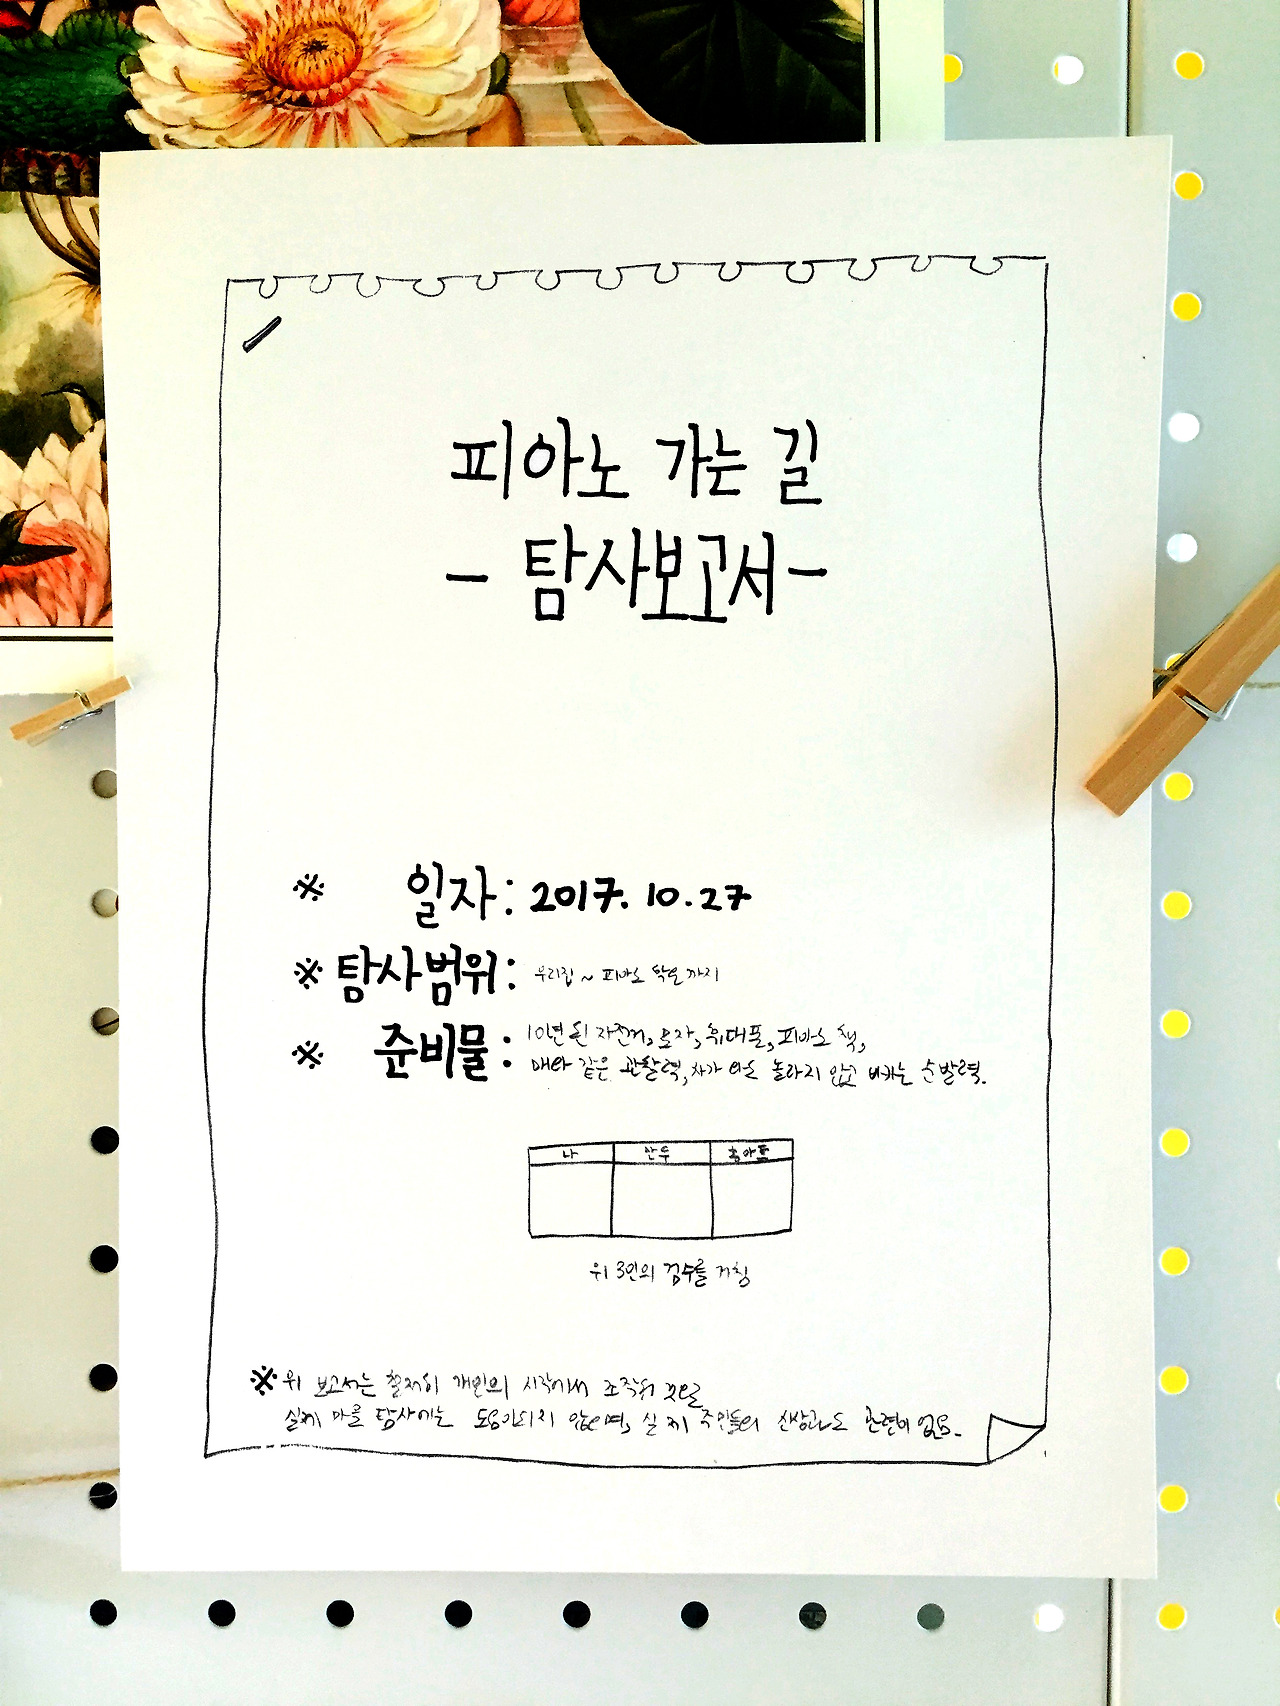 피아노 가는 길
- 탐사보고서 -
※ 일자 : 2017. 10. 27
※ 탐사범위 : 우리집 ~ 피아노 학원 까지
※ 준비물 : 10년 된 자전거, 모자, 휴대폰, 피아노 책,
매와 같은 관찰력, 차가 와도 놀라지 않고 비키는 순발력.
나 만두
위 3인의 검수를 거침
※ 위 보고서는 철저히 개인의 시각에서 조작된 것으로
실제 마을 탐사에는 도움이되지 않으며, 실제 주민들의 신상과도 관련이 없음.